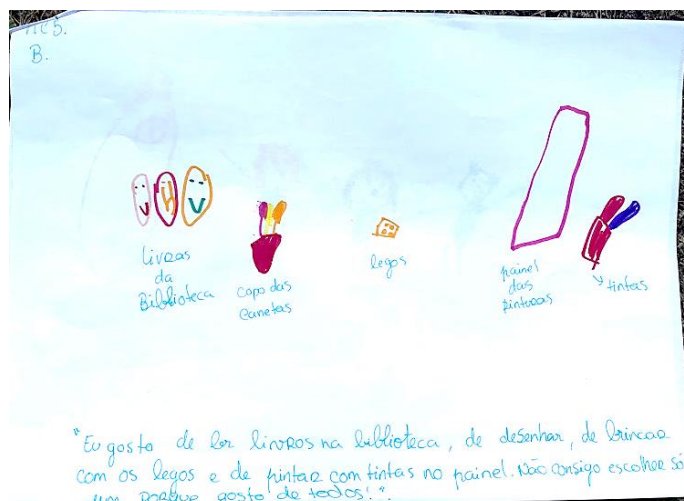 B.
livros
da
Biblioteca
copo das
canetas
legos
painel
das
pinturas
tintas
"Eu gosto de ler livros na biblioteca, de desenhar, de brincar
com os legos e de pintar com tintas no painel. Não consigo escolher só
um porque gosto de todos!".